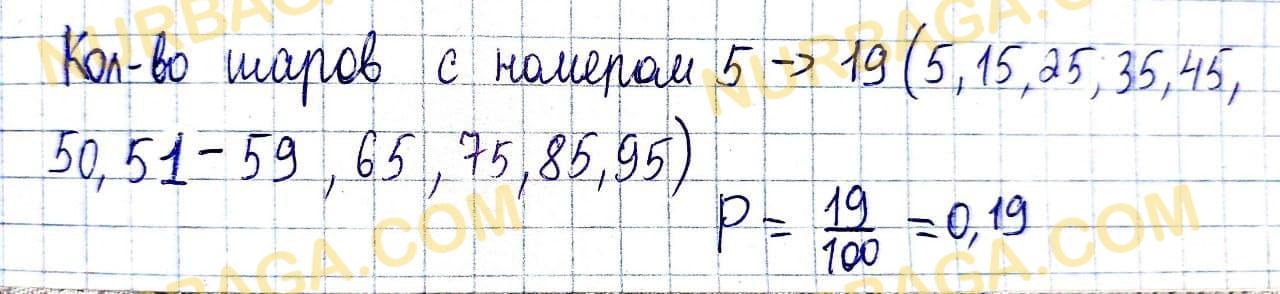 NURBAGA.COM NURBAGA.COM
Кол-во шаров с номером 5 -> 19 (5, 15, 25, 35, 45,
50, 51 - 59, 65, 75, 85, 95)
P = 19/100 = 0,19
NURBAGA.COM NURBAGA.COM